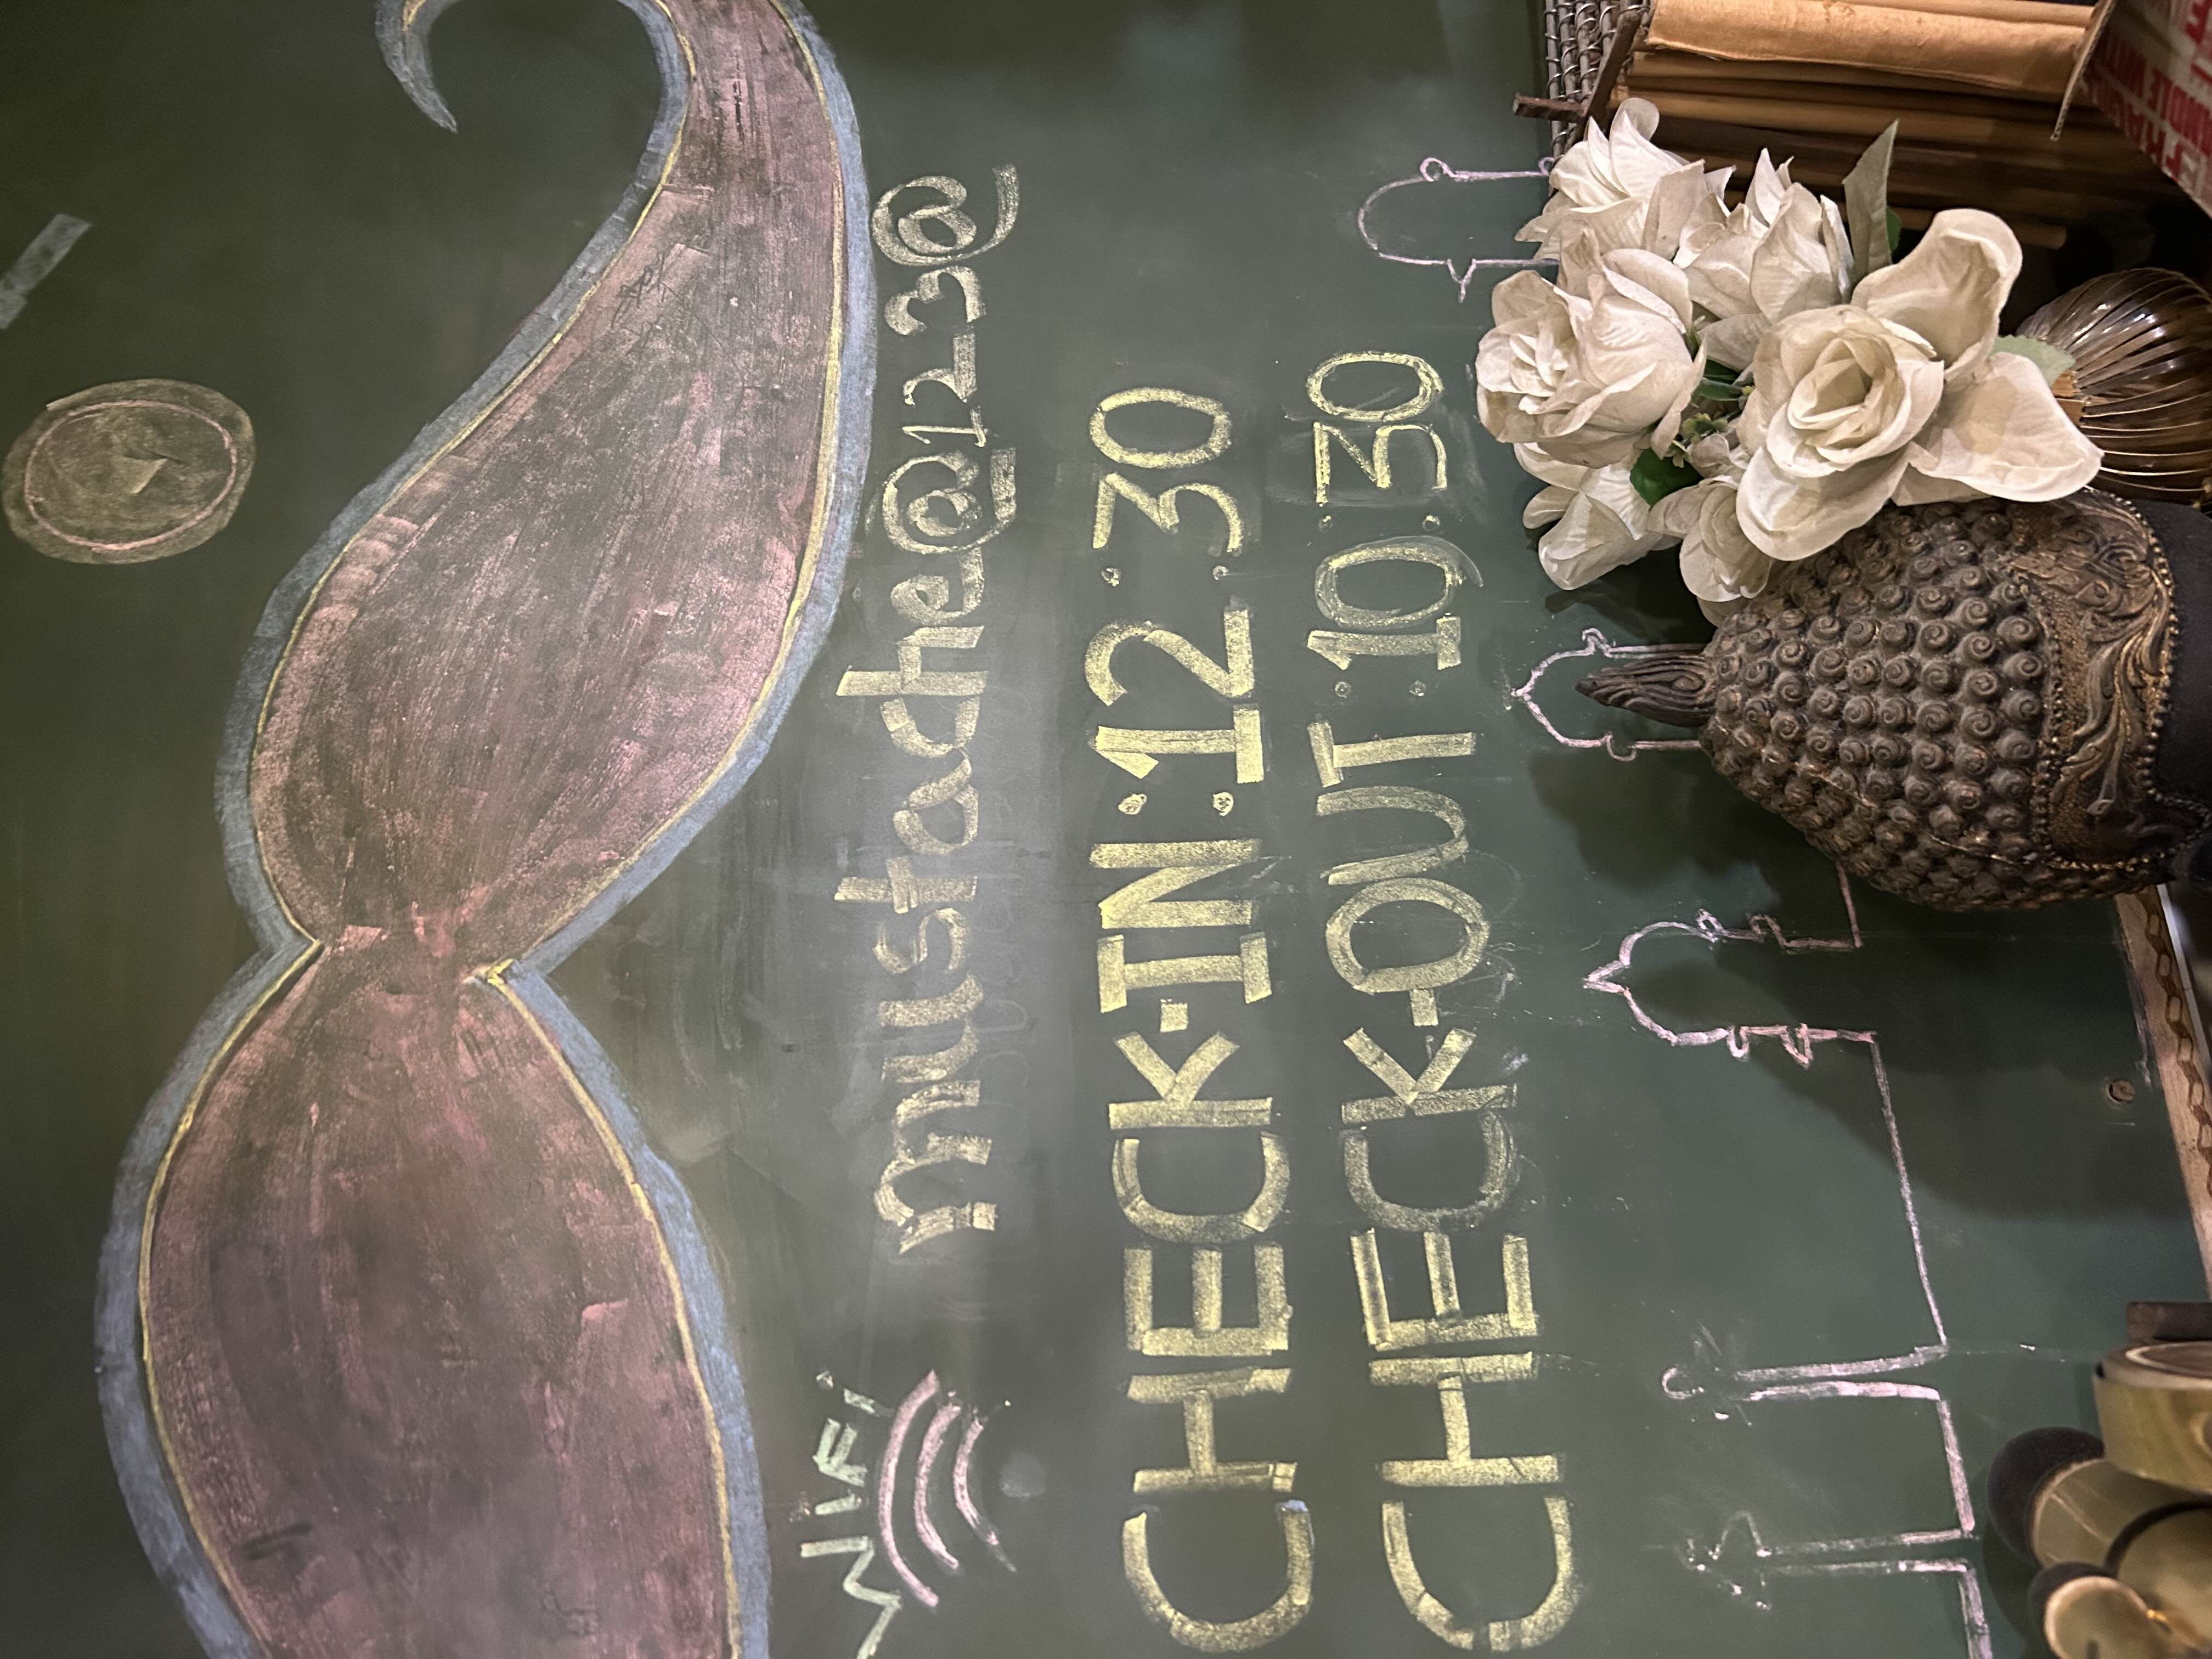 WIFi mustache@123@
CHECK-IN:12:30
CHECK-OUT:10:30